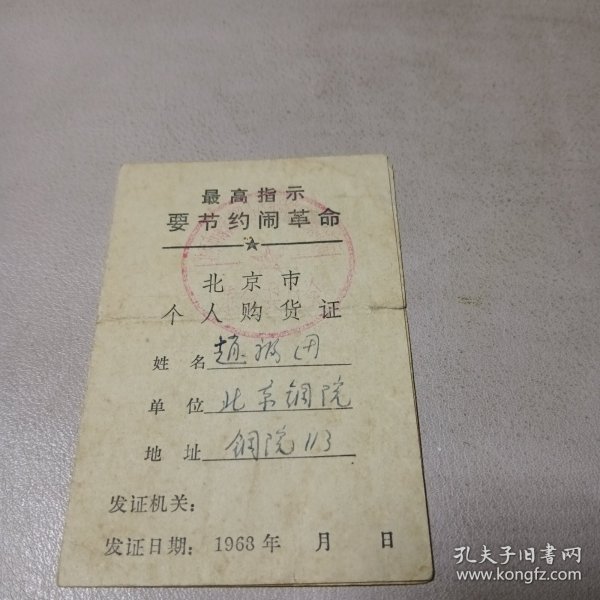 最高指示
要节约闹革命
北京市
个人购货证
姓名 趙
单位 北京钢院
地址 钢院113
发证机关：
发证日期：1968年 月 日
孔夫子旧书网
www.kongfz.com